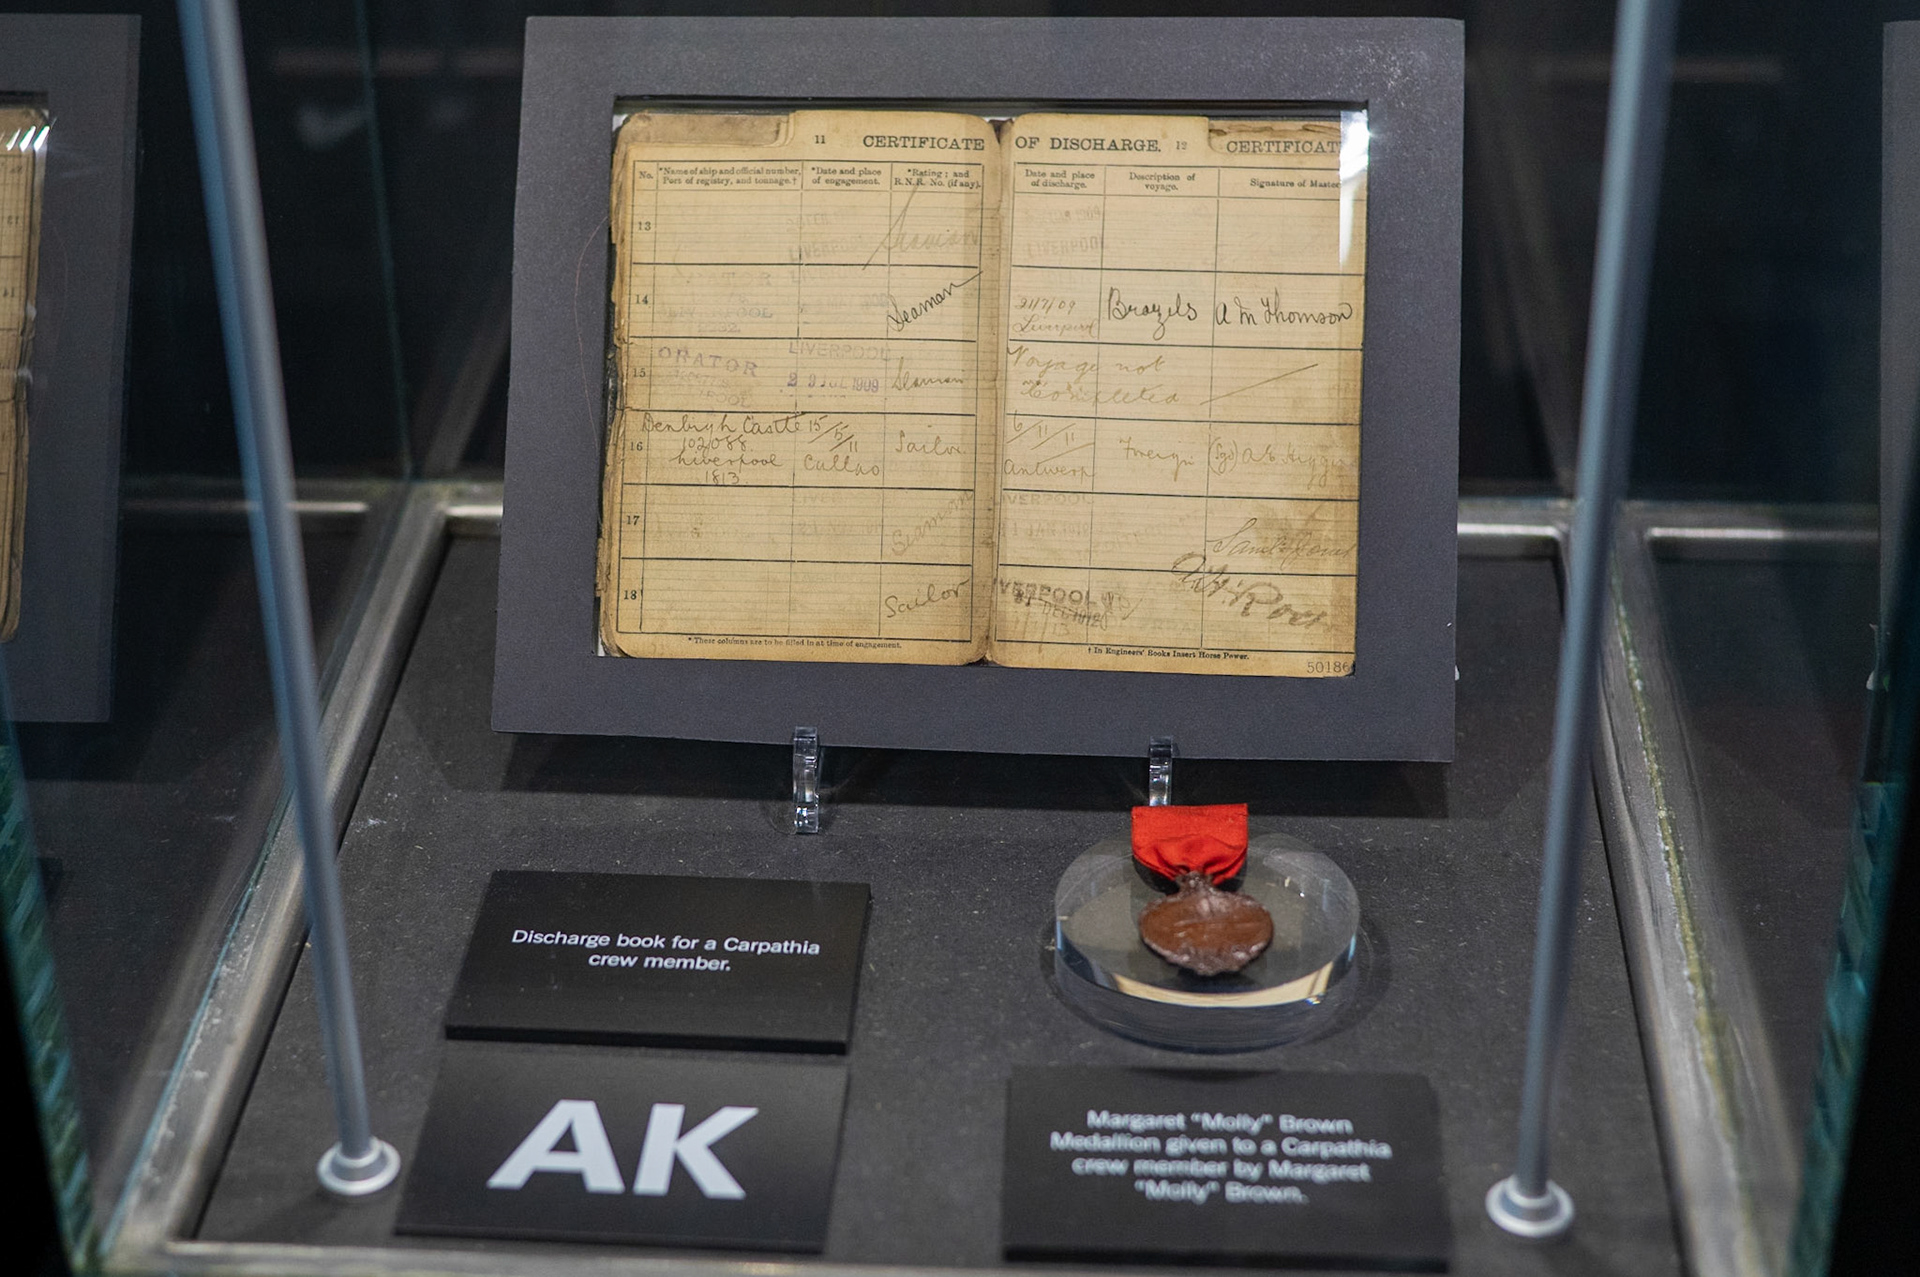 11 CERTIFICATE OF DISCHARGE. 12 CERTIFICAT
No. *Name of ship and official number, Port of registry, and tonnage.† *Date and place of engagement. *Rating; and R.N.R. No. (if any). Date and place of discharge. Description of voyage. Signature of Master
13 LIVERPOOL Seaman LIVERPOOL
14 Seaman 31/7/09 Liverpool Brazils A M Thomson
15 ORATOR LIVERPOOL 29 JUL 1909 Seaman Voyage not Completed
16 Denbigh Castle 102,088. Liverpool 1813 15/5/11 Callao Sailor 6/11/11 Antwerp Foreign (Sgd)
17 Seaman
18 Sailor IVERPOOL
* These columns are to be filled in at time of engagement.
† In Engineers' Books Insert Horse Power.
50186
Discharge book for a Carpathia
crew member.
AK
Margaret "Molly" Brown
Medallion given to a Carpathia
crew member by Margaret
"Molly" Brown.